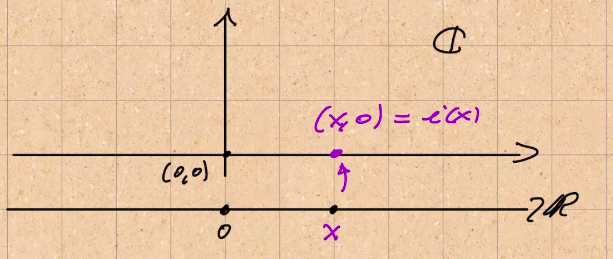 ℂ
(x,0) = i(x)
(0,0)
ℝ
0
x